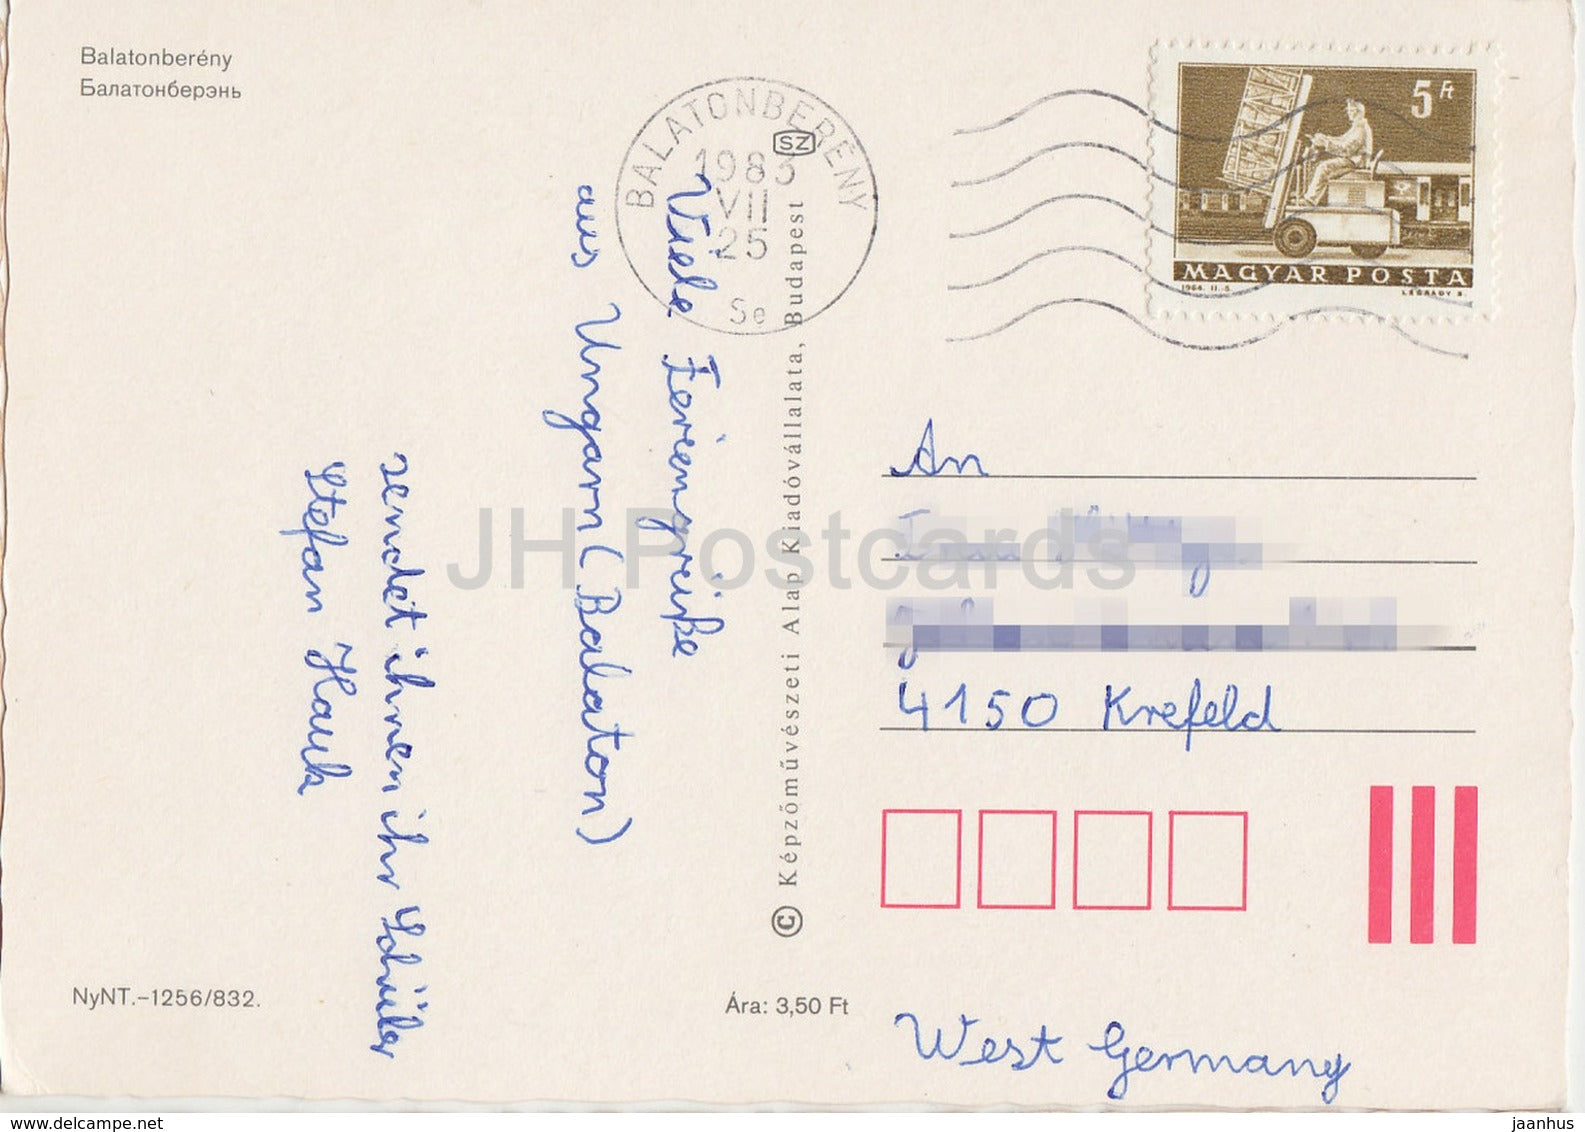 Balatonberény
Балатонберэнь
BALATONBERÉNY
1983
VII
25
Se
SZ
5 Ft
MAGYAR POSTA
1964. II-5.
LÉGRÁDY S.
Viele Feriengrüße
aus Ungarn (Balaton)
sendet ihnen ihr Schüler
Stefan Hauk
© Képzőművészeti Alap Kiadóvállalata, Budapest
An
4150 Krefeld
West Germany
NyNT.–1256/832.
Ára: 3,50 Ft
JH Postcards
delcampe.net
jaanhus